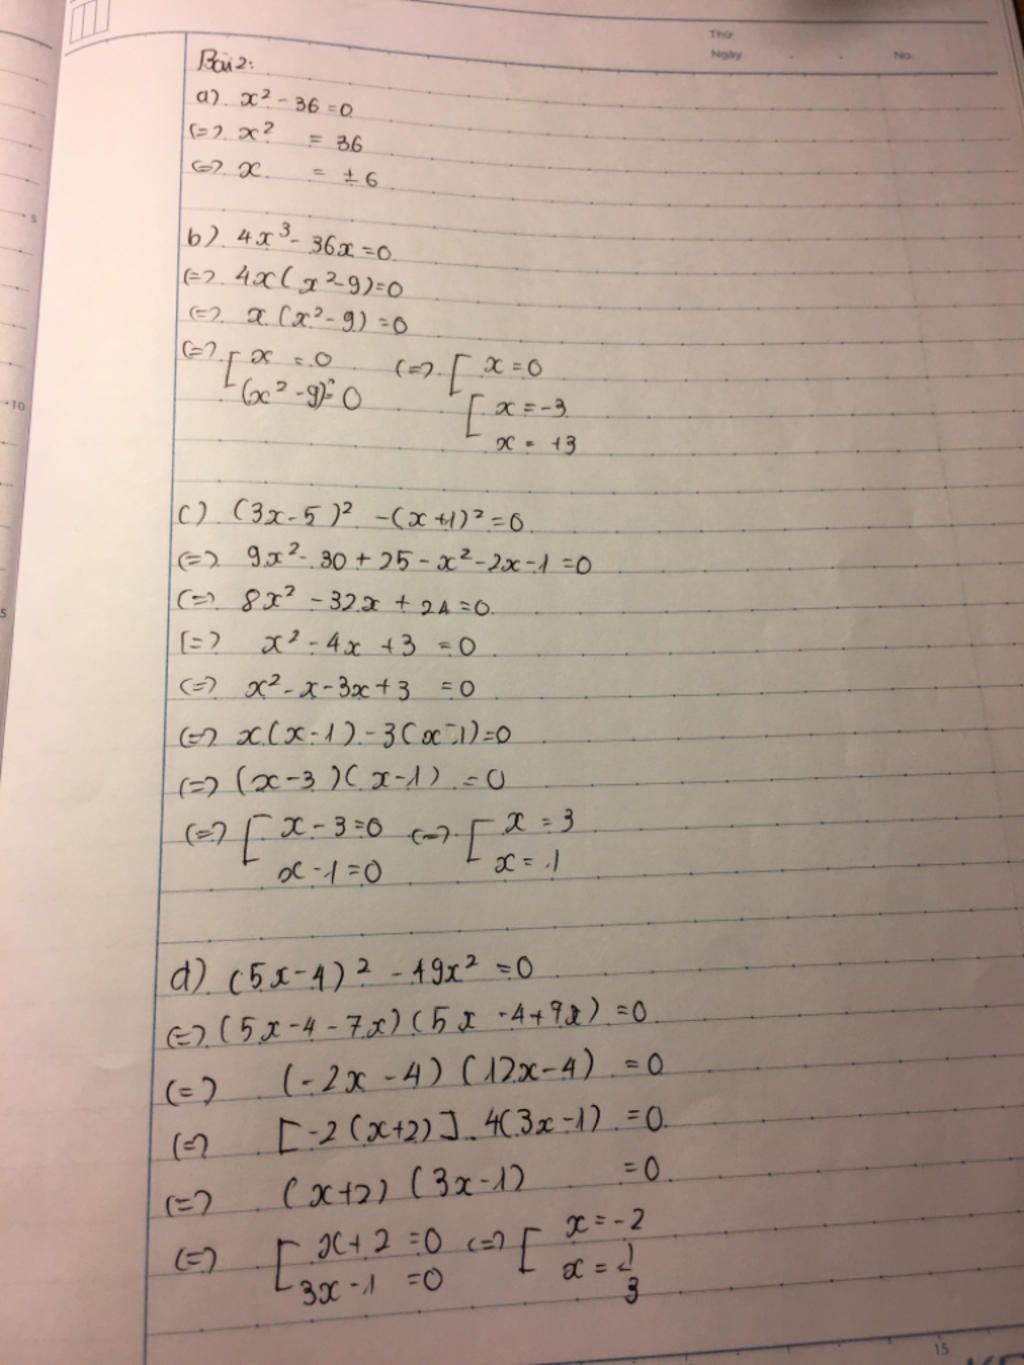 Thứ
Ngày No.
Bài 2:
a) x² - 36 = 0
(=) x² = 36
(=) x = ±6
5
b) 4x³ - 36x = 0
(=) 4x(x² - 9) = 0
(=) x(x² - 9) = 0
(=) [ x = 0 (=) [ x = 0
(x² - 9) = 0 [ x = -3
10
x = +3
c) (3x - 5)² - (x + 1)² = 0
(=) 9x² - 30 + 25 - x² - 2x - 1 = 0
(=) 8x² - 32x + 24 = 0
5
(=) x² - 4x + 3 = 0
(=) x² - x - 3x + 3 = 0
(=) x(x - 1) - 3(x - 1) = 0
(=) (x - 3)(x - 1) = 0
(=) [ x - 3 = 0 (=) [ x = 3
x - 1 = 0 x = 1
d) (5x - 4)² - 49x² = 0
(=) (5x - 4 - 7x)(5x - 4 + 7x) = 0
(=) (-2x - 4)(12x - 4) = 0
(=) [-2(x + 2)] . 4(3x - 1) = 0
(=) (x + 2)(3x - 1) = 0
(=) [ x + 2 = 0 (=) [ x = -2
3x - 1 = 0 x = 1/3
15